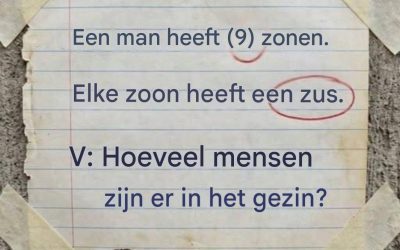 Een man heeft (9) zonen.
Elke zoon heeft een zus.
V: Hoeveel mensen
zijn er in het gezin?